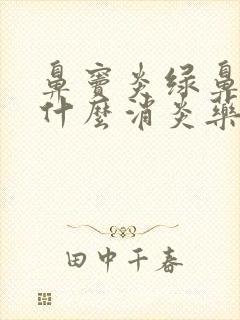 鼻窦炎绿鼻
什麼消炎藥
田中千春